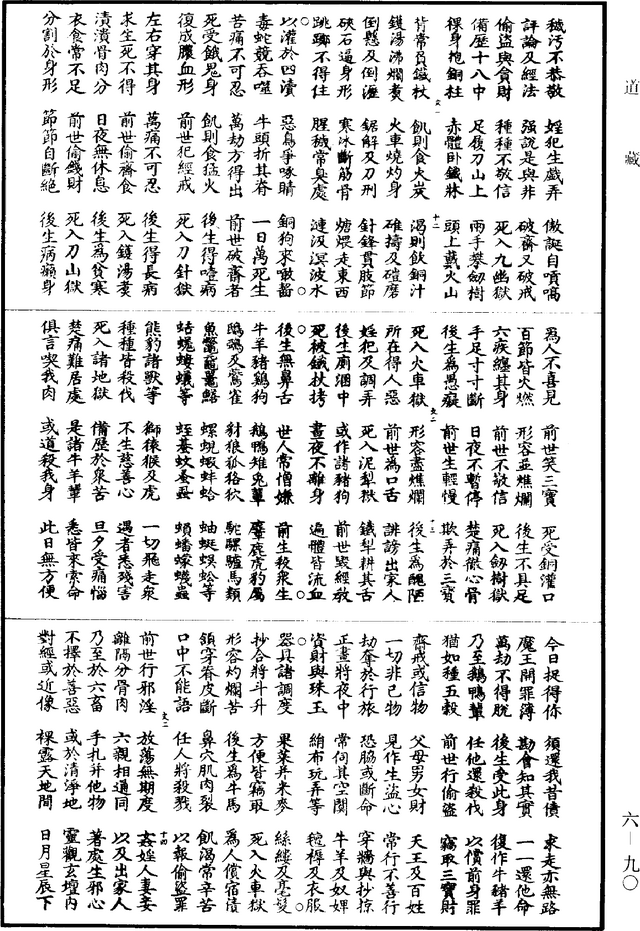 道藏
六—九〇
穢污不恭敬　婬犯生戲弄　傲誕自嗔喎
評論及經法　强說是與非　破齋又破戒
偷盜與貪財　種種不敬信　死入九幽獄
備歷十八中　足復刀山上　兩手攀劒樹
裸身抱銅柱　赤體卧鐵牀　頭上戴火山
背常負鐵杖　飢則食火炭　渴則飲銅汁
鑊湯沸爛煑　火車燒灼身　碓擣及磑磨
倒懸及倒瀝　鋸解及刀刑　針鋒貫肢節
硤石逼身形　寒冰斷筋骨　煻煨走東西
跳躑不得住　腥穢常臭處　漣汲溟波水
以灌於四瀆　惡鳥爭啄睛　銅狗來噉齧
毒蛇競吞噬　牛頭折其脊　一日萬死生
苦痛不可忍　萬劫方得出　前世破齋者
死受餓鬼身　飢則食猛火　後生得噎病
復成膿血形　前世犯經戒　死入刀針獄
左右穿其身　萬痛不可忍　後生得長病
求生死不得　前世偷齋食　死入鑊湯煑
潰潰骨肉分　日夜無休息　後生為貧寒
衣食常不足　前世偷錢財　死入刀山獄
分割於身形　節節自斷絕　後生病癩身
為人不喜見　前世笑三寶　死受銅灌口
百節皆火燃　形容並燋爛　後生不具足
六疾纏其身　前世不敬信　死入劒樹獄
手足寸寸斷　日夜不暫停　楚痛徹心骨
後生為愚癡　前世生輕慢　欺弄於三寶
死入火車獄　形容盡燋爛　後生為醜陋
所在得人惡　前世為口舌　誹謗出家人
婬犯及調弄　死入泥犂獄　鐵犁耕其舌
後生廁溷中　或作諸豬狗　前世毀經教
死被鐵杖拷　晝夜不離身　遍體皆流血
後生無鼻舌　世人常憎嫌　前生殺衆生
牛羊豬鷄狗　鵝鴨雉兔輩　麞鹿虎豹屬
鴟鴞及鶯雀　豺狼狐狢狄　駝騾驢馬類
魚鱉黿鼉鰌　螺蜆蝦蚌蛤　蚰蜒蜈蚣等
蛣蜣螻蟻等　蛭蟇蚊蚤蝨　蟠蠓蠛蟲
熊豹諸獸等　獅猿猴及虎　一切飛走衆
種種皆殺伐　不生慈善心　遇者悉殘害
死入諸地獄　備歷於衆苦　旦夕受痛惱
楚痛難居處　是諸牛羊輩　悉皆來索命
俱言喫我肉　或道殺我身　此日無方便
今日捉得你　須還我昔債　求走亦無路
魔王開罪簿　勘會知其實　一一還他命
萬劫不得脫　後生受此身　復作牛豬羊
乃至鵝鴨輩　任他還殺伐　以償前身罪
猶如種五穀　前世行偷盜　竊取三寶財
齋戒或信物　父母男女財　天王及百姓
一切非己物　見作生盜心　常行不善行
劫奪於行旅　恐脇或斷命　穿牆與抄掠
正晝將夜中　常伺其空闕　牛羊及奴婢
資財與珠玉　綃布玩弄等　氈褥及衣服
器具諸調度　果菜并米麥　絲縷及毫髮
抄合將斗升　方便皆竊取　死入火車獄
形容灼爛苦　後生為牛馬　為人償宿債
領穿脊皮斷　鼻穴肌肉裂　飢渴常辛苦
口中不能語　任人將殺戮　以報偷盜罪
前世行邪淫　放蕩無期度　姦婬人妻妾
離隔分骨肉　六親相通同　以及出家人
乃至於六畜　手扎并他物　著處生邪心
不擇於善惡　或於清淨地　靈觀玄壇內
對經或近像　裸露天地間　日月星辰下